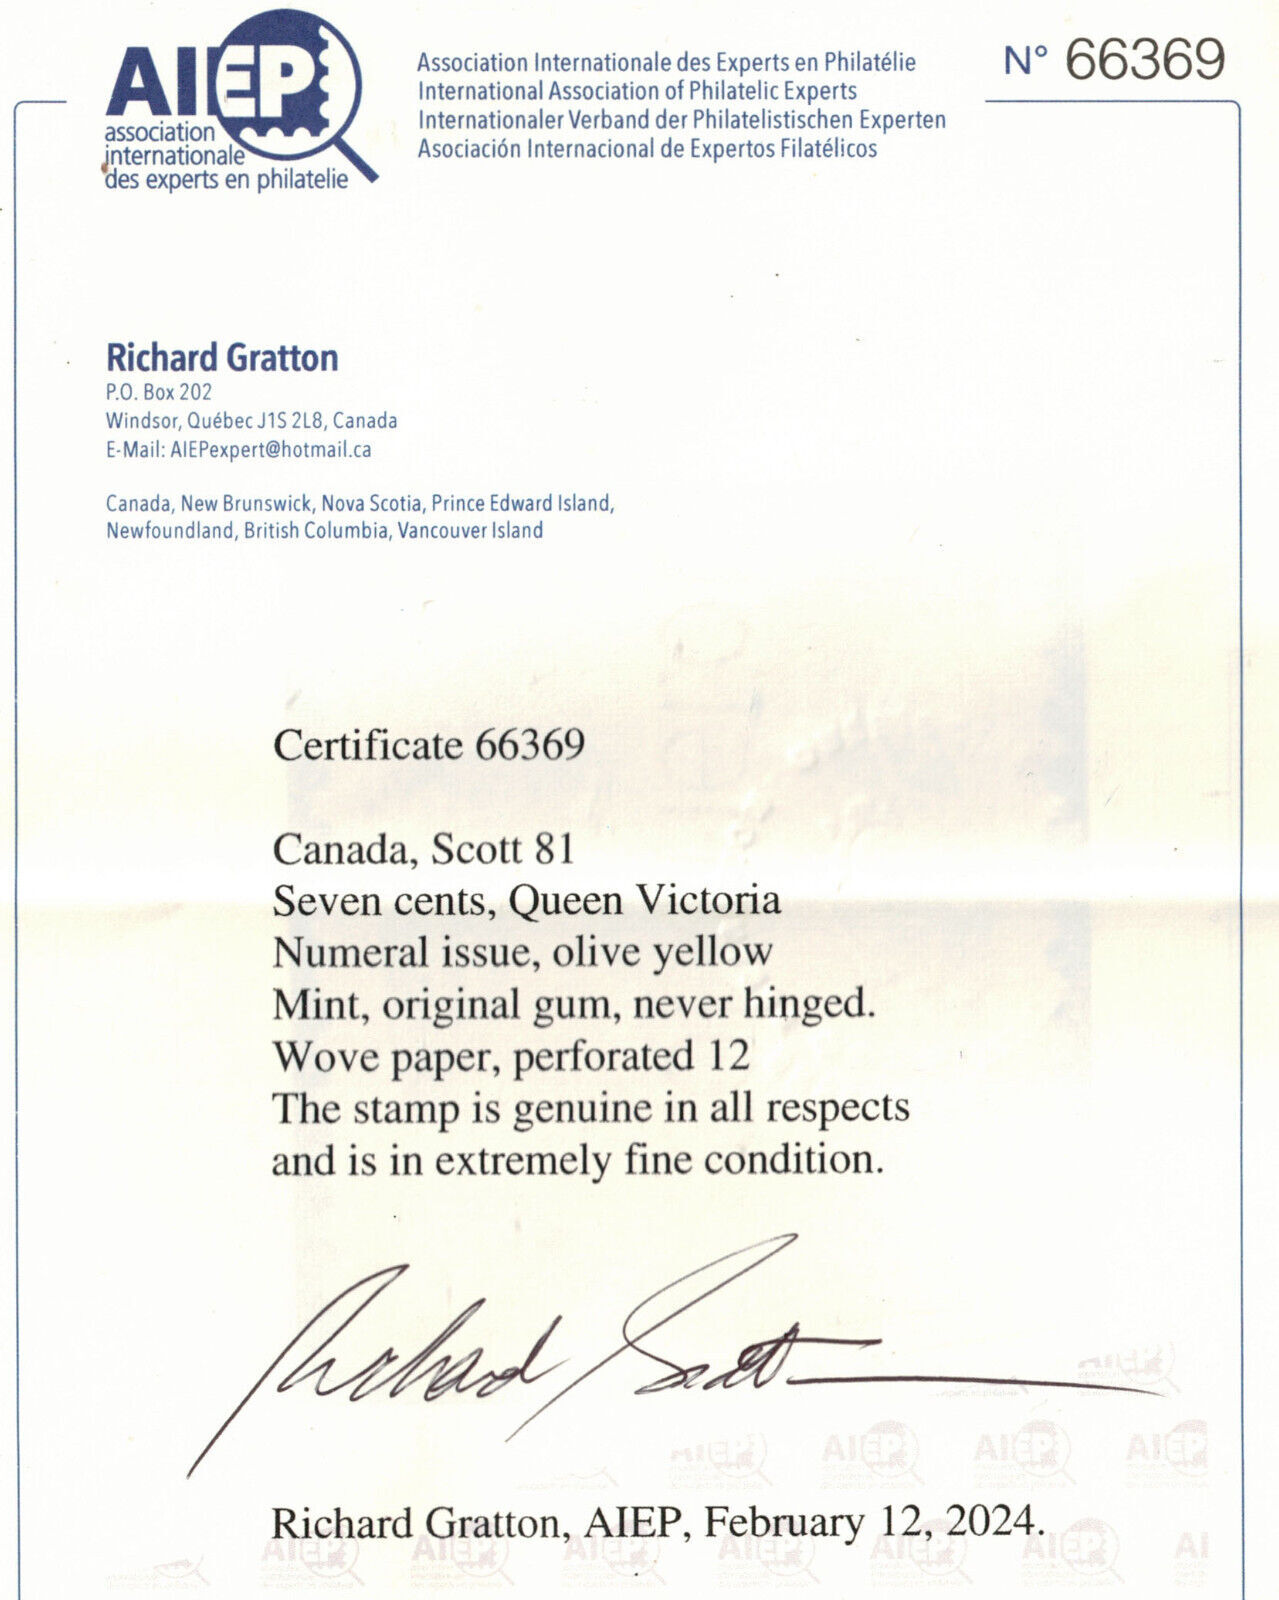 AIEP
association
internationale
des experts en philatelie
Association Internationale des Experts en Philatélie
International Association of Philatelic Experts
Internationaler Verband der Philatelistischen Experten
Asociación Internacional de Expertos Filatélicos
N° 66369
Richard Gratton
P.O. Box 202
Windsor, Québec J1S 2L8, Canada
E-Mail: AIEPexpert@hotmail.ca
Canada, New Brunswick, Nova Scotia, Prince Edward Island,
Newfoundland, British Columbia, Vancouver Island
Certificate 66369
Canada, Scott 81
Seven cents, Queen Victoria
Numeral issue, olive yellow
Mint, original gum, never hinged.
Wove paper, perforated 12
The stamp is genuine in all respects
and is in extremely fine condition.
Richard Gratton
AIEP
AIEP AIEP AIEP AIEP
Richard Gratton, AIEP, February 12, 2024.
AIEP AIEP AIEP AIEP AIEP AIEP AI